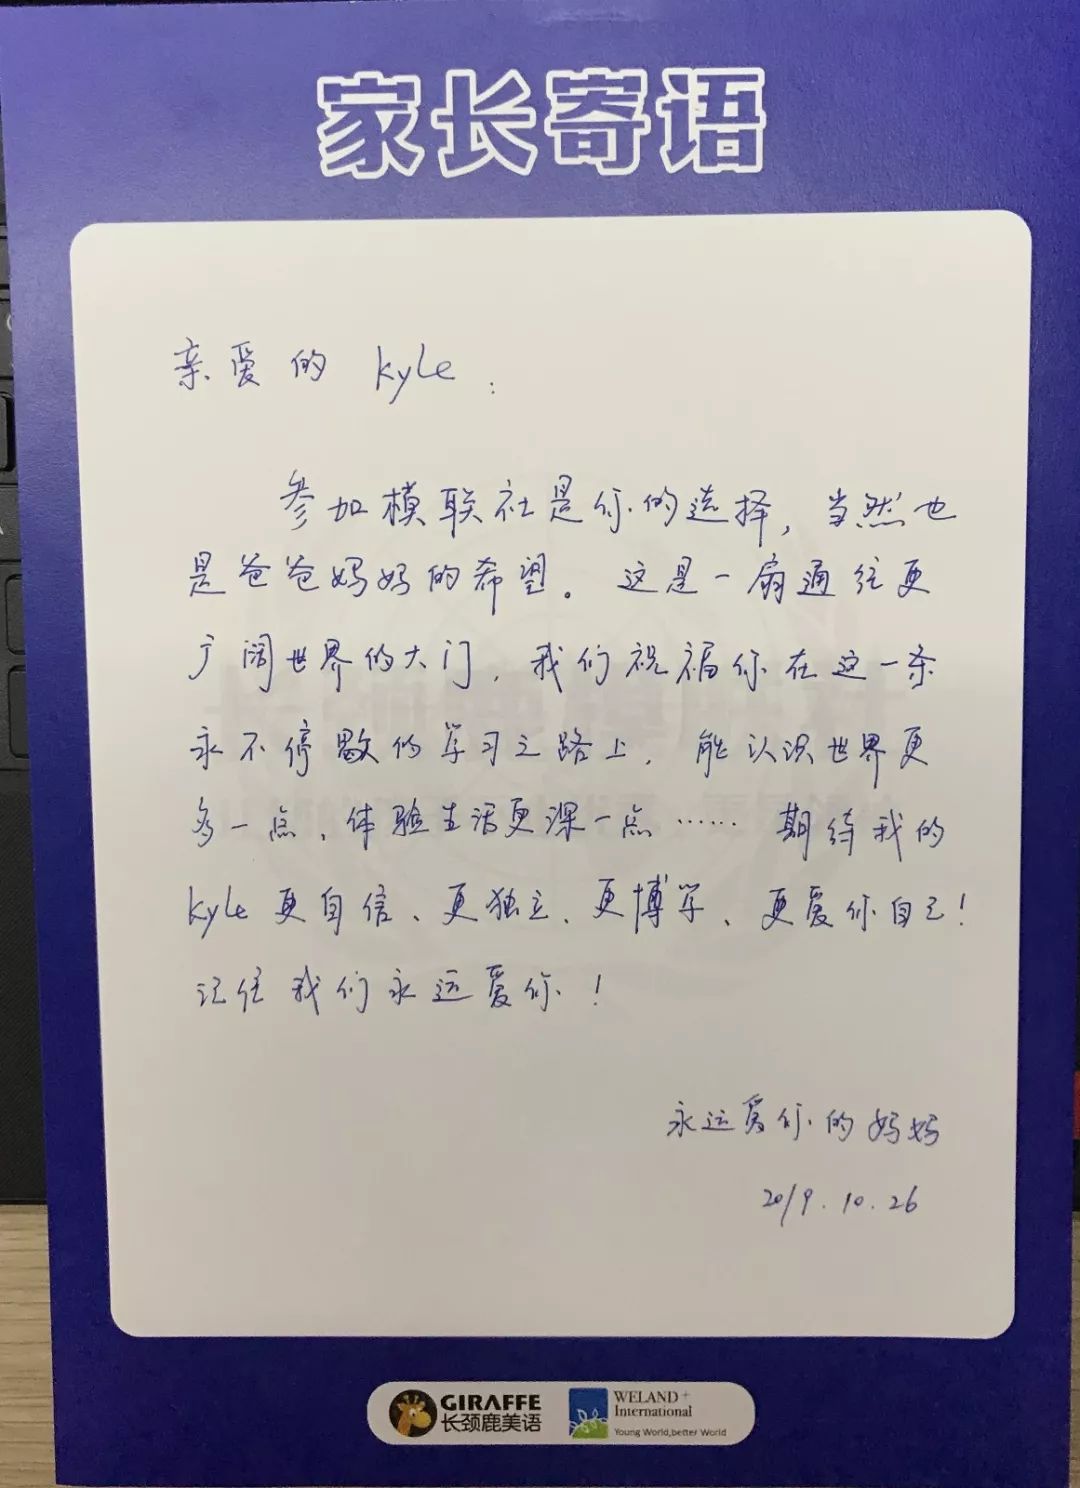 家长寄语
亲爱的 kyle：
参加模联社是你的选择，当然也
是爸爸妈妈的希望。这是一扇通往更
广阔世界的大门，我们祝福你在这一条
永不停歇的学习之路上，能认识世界更
多一点，体验生活更深一点…… 期待我的
kyle更自信、更独立、更博学、更爱你自己！
记住我们永远爱你！
永远爱你的妈妈
2019.10.26
GIRAFFE
长颈鹿美语
WELAND+
International
Young World,better World